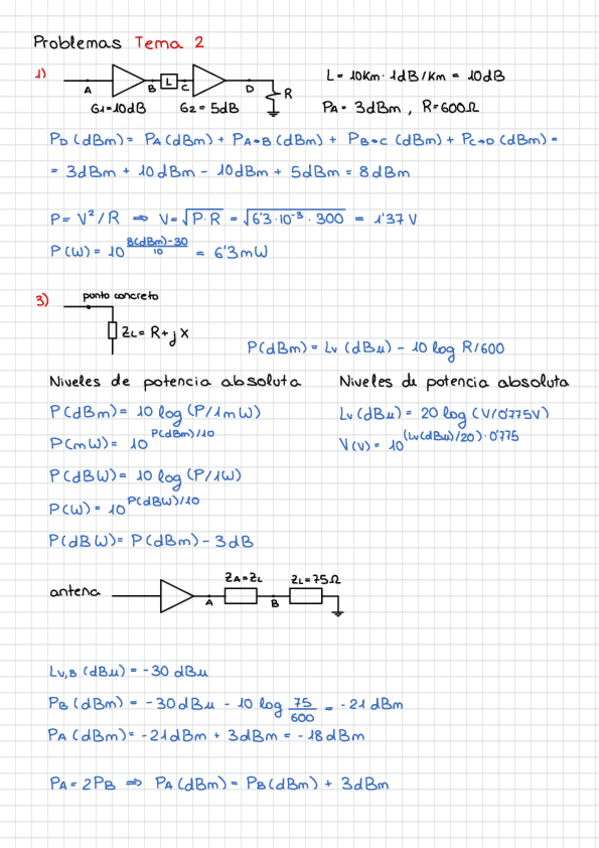 Problemas Tema 2
1)
A B L C D R
G1=10dB G2=5dB
L= 10Km · 1dB/Km = 10dB
PA= 3dBm, R=600Ω
PD (dBm)= PA(dBm) + PA→B (dBm) + PB→C (dBm) + PC→D (dBm) =
= 3dBm + 10dBm - 10dBm + 5dBm = 8dBm
P= V²/R ⇒ V=√P·R = √6'3·10⁻³·300 = 1'37 V
P(W) = 10^(8(dBm)-30/10) = 6'3mW
3)
punto concreto
ZL= R+jX
P(dBm) = Lv (dBu) - 10 log R/600
Niveles de potencia absoluta
P(dBm)= 10 log (P/1mW)
P(mW)= 10^P(dBm)/10
P(dBW)= 10 log (P/1W)
P(W)= 10^P(dBW)/10
P(dBW)= P(dBm) - 3dB
Niveles de potencia absoluta
Lv(dBu) = 20 log (V/0'775V)
V(V)= 10^(Lv(dBu)/20)·0'775
antena
A ZA=ZL B ZL=75Ω
Lv,B (dBu) = -30 dBu
PB (dBm) = -30dBu - 10 log 75/600 = -21 dBm
PA (dBm)= -21dBm + 3dBm = -18dBm
PA= 2PB ⇒ PA (dBm)= PB(dBm) + 3dBm